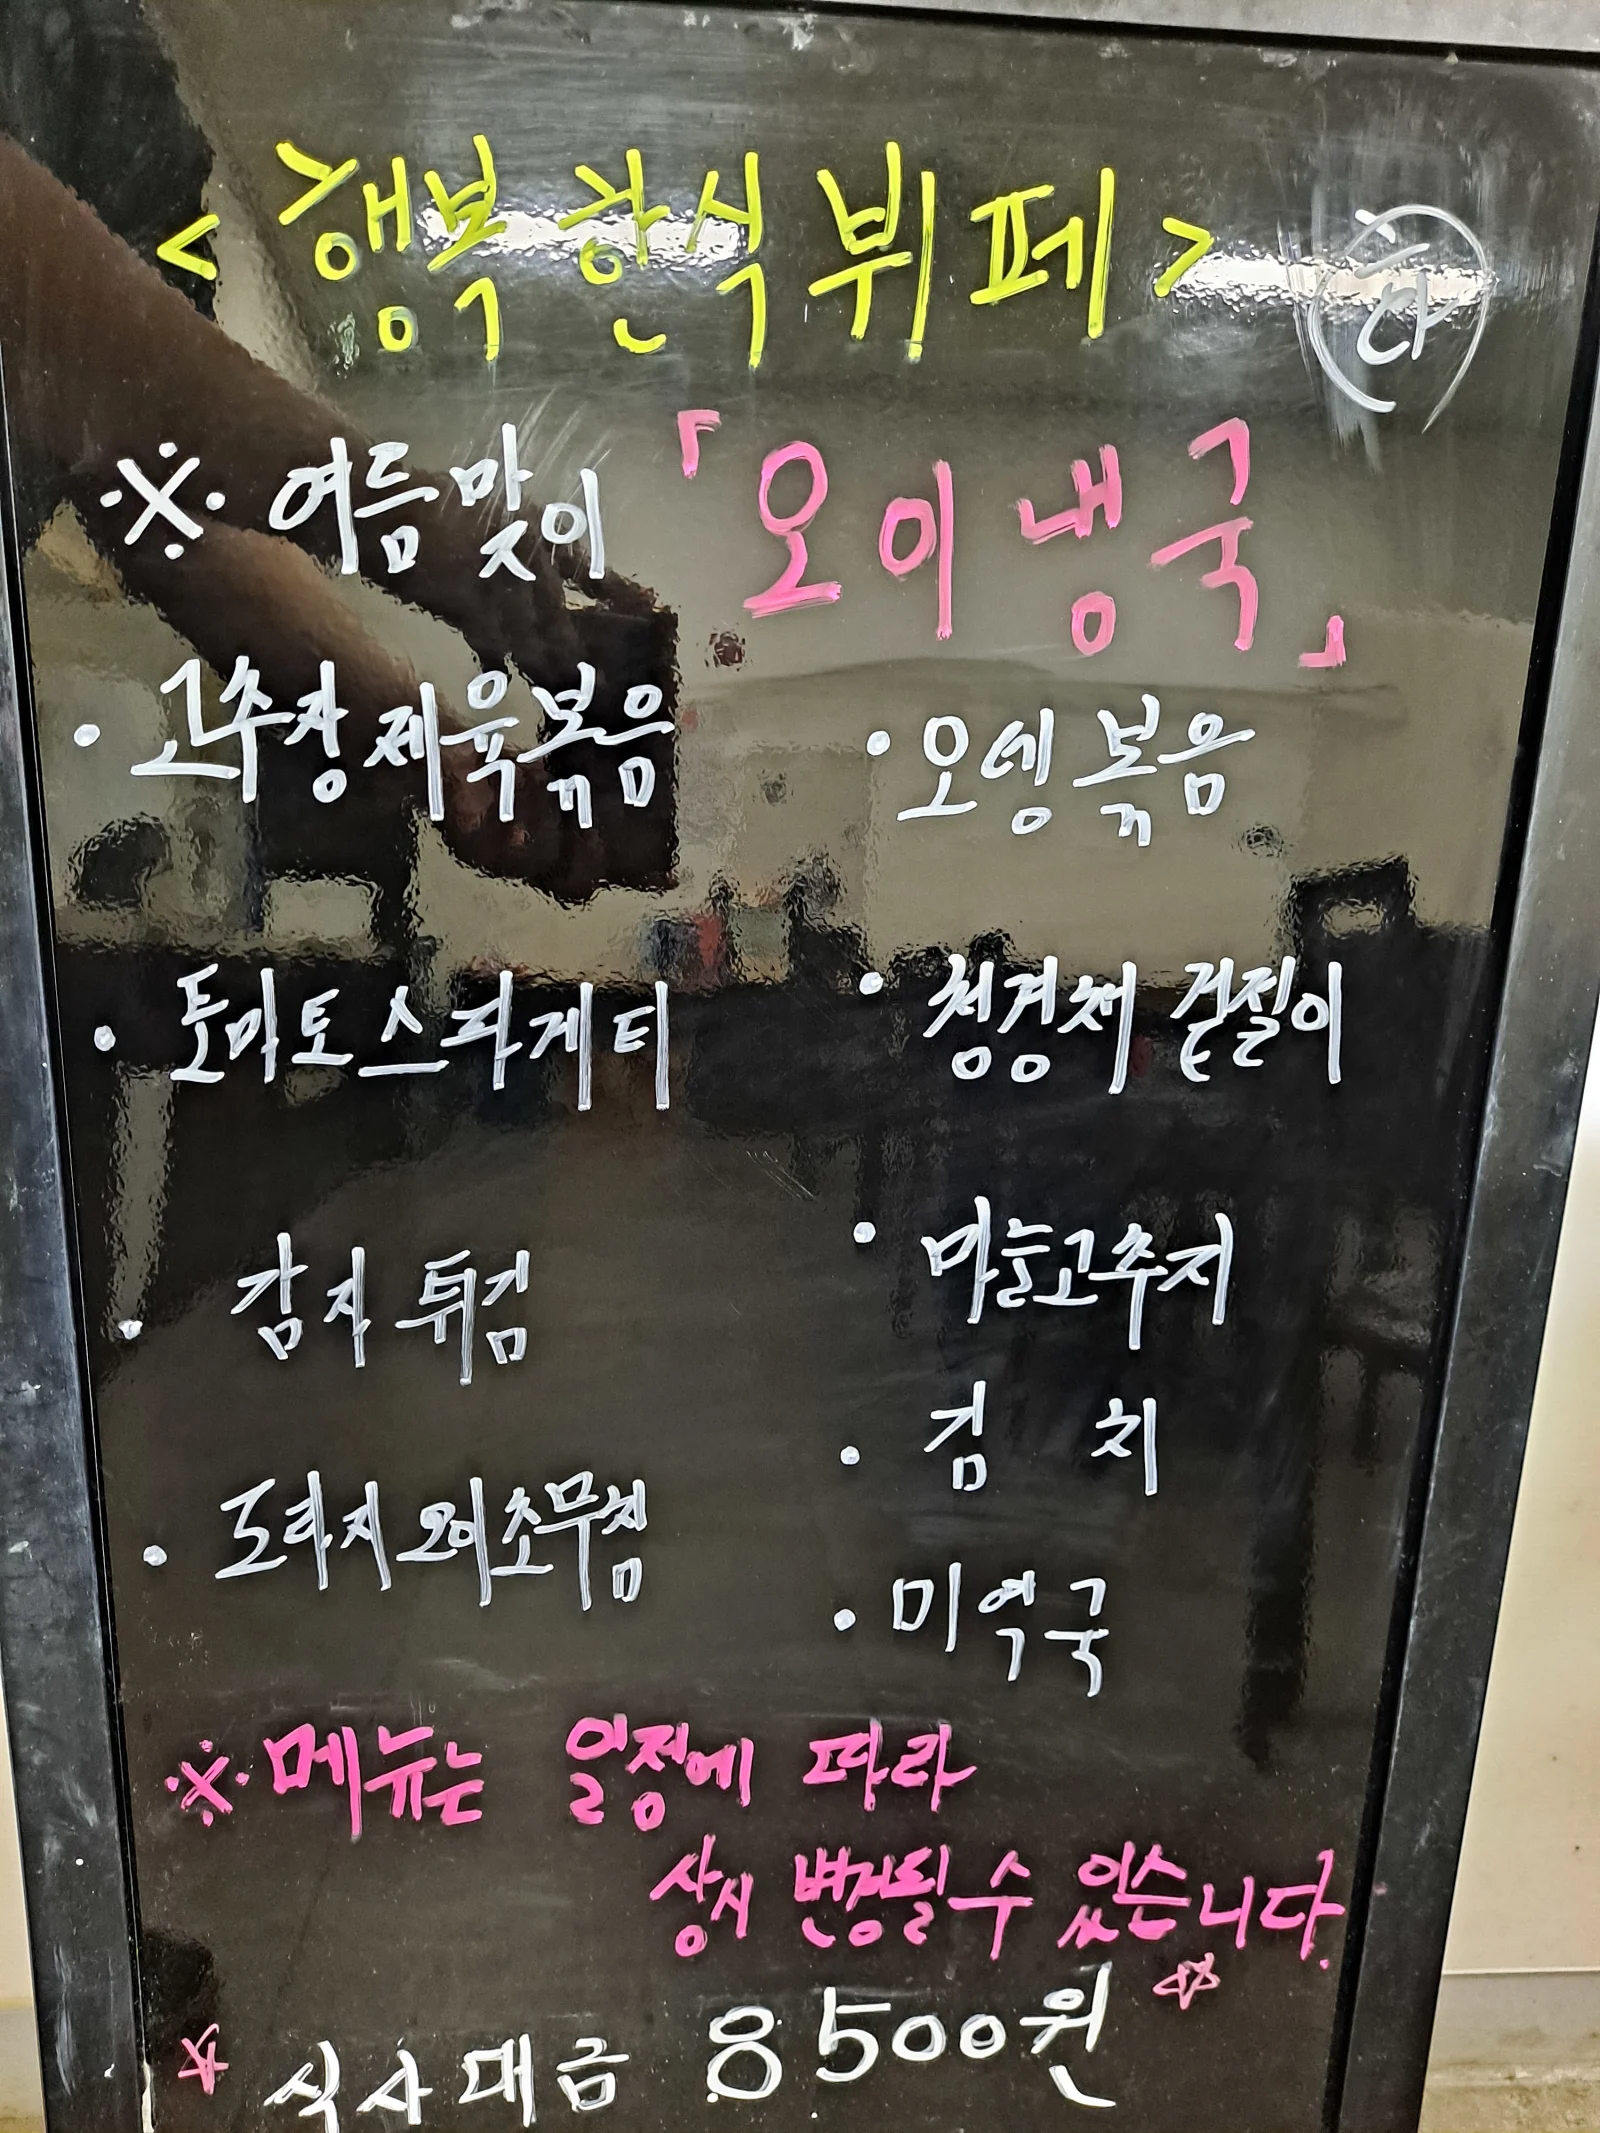 < 행복한식뷔페 > 화
※ 여름맞이 「오이냉국」
· 고추장제육볶음
· 오뎅볶음
· 토마토스파게티
· 청경채 겉절이
· 감자튀김
· 마늘고추지
· 김치
· 도라지오이초무침
· 미역국
※ 메뉴는 일정에 따라
상시 변경될 수 있습니다.
☆ 식사대금 8500원 ☆